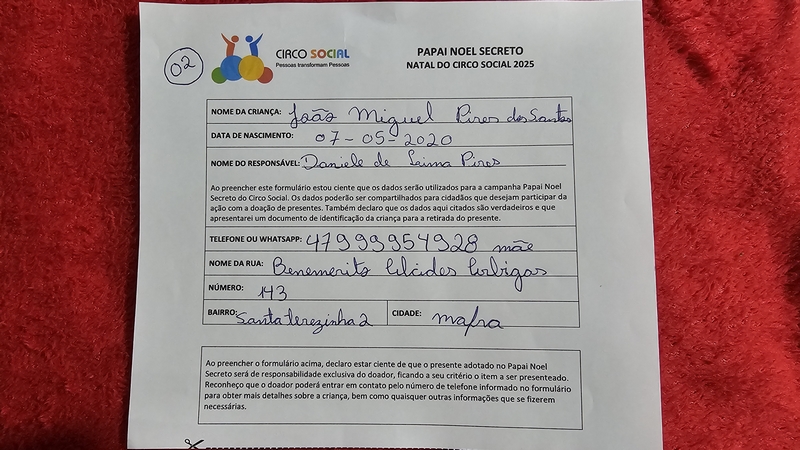 02
CIRCO SOCIAL
Pessoas transformam Pessoas
PAPAI NOEL SECRETO
NATAL DO CIRCO SOCIAL 2025
NOME DA CRIANÇA: João Miguel Pires dos Santos
DATA DE NASCIMENTO: 07-05-2020
NOME DO RESPONSÁVEL: Daniele de Pires
Ao preencher este formulário estou ciente que os dados serão utilizados para a campanha Papai Noel
Secreto do Circo Social. Os dados poderão ser compartilhados para cidadãos que desejam participar da
ação com a doação de presentes. Também declaro que os dados aqui citados são verdadeiros e que
apresentarei um documento de identificação da criança para a retirada do presente.
TELEFONE OU WHATSAPP: 47999954928 mãe
NOME DA RUA: Benemerito
NÚMERO: 143
BAIRRO: Santa terezinha 2 CIDADE: mafra
Ao preencher o formulário acima, declaro estar ciente de que o presente adotado no Papai Noel
Secreto será de responsabilidade exclusiva do doador, ficando a seu critério o item a ser presenteado.
Reconheço que o doador poderá entrar em contato pelo número de telefone informado no formulário
para obter mais detalhes sobre a criança, bem como quaisquer outras informações que se fizerem
necessárias.